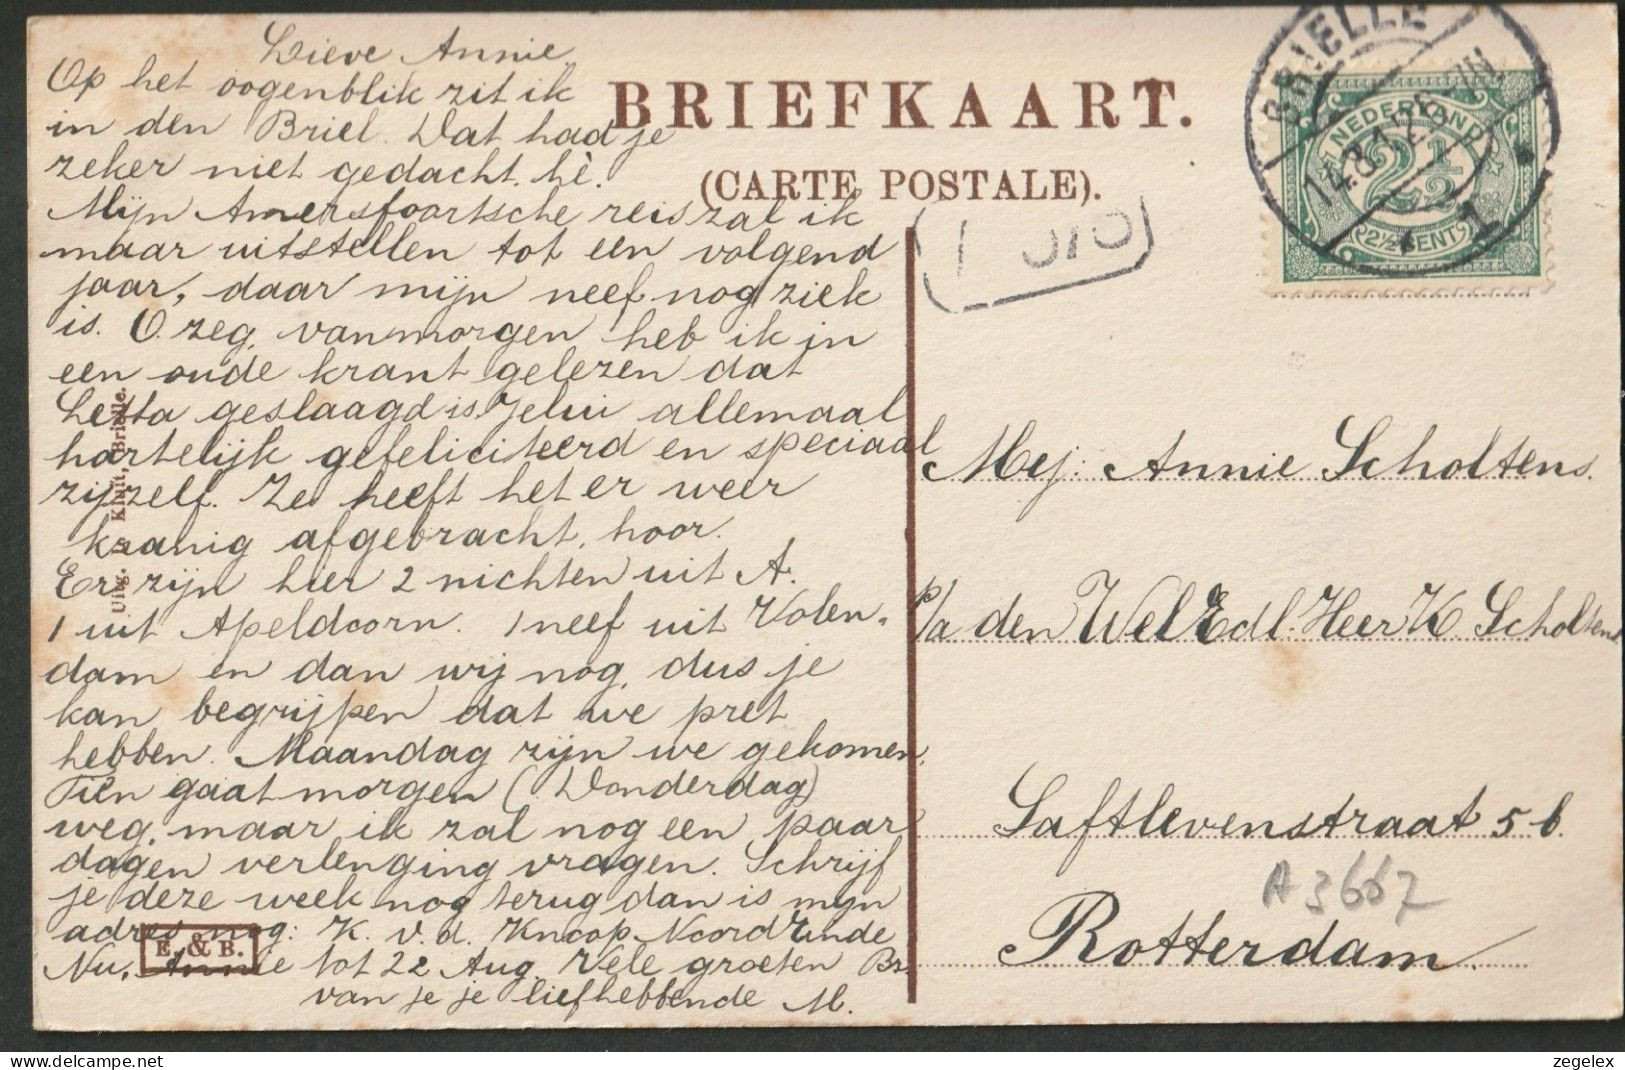 Lieve Annie,
Op het oogenblik zit ik
in den Briel. Dat had je
zeker niet gedacht, hè.
Mijn Amersfoortsche reis zal ik
maar uitstellen tot een volgend
jaar, daar mijn neef nog ziek
is. O. zeg, vanmorgen heb ik in
een oude krant gelezen dat
Letta geslaagd is. Jelui allemaal
hartelijk gefeliciteerd en speciaal
zijzelf. Ze heeft het er weer
kranig afgebracht, hoor.
Er zijn hier 2 nichten uit A.
1 uit Apeldoorn. 1 neef uit Volen-
dam en dan wij nog, dus je
kan begrijpen dat we pret
hebben. Maandag zijn we gekomen,
Tien gaat morgen (Donderdag)
weg, maar ik zal nog een paar
dagen verlenging vragen. Schrijf
je deze week nog terug dan is mijn
adres nog: K. v. d. Knoop. Noord Einde
Nu, Annie tot 22 Aug. Vele groeten Br.
van je je liefhebbende M.
Uitg. Kluit, Brielle.
E. & B.
BRIEFKAART.
(CARTE POSTALE).
BRIELLE
14.8.12
1
NEDERLAND
2½
2½ CENT
Mej: Annie Scholtens.
p/a den WelEdl. Heer K. Scholtens
Saftlevenstraat 5 b.
Rotterdam.
A3667
zegelex